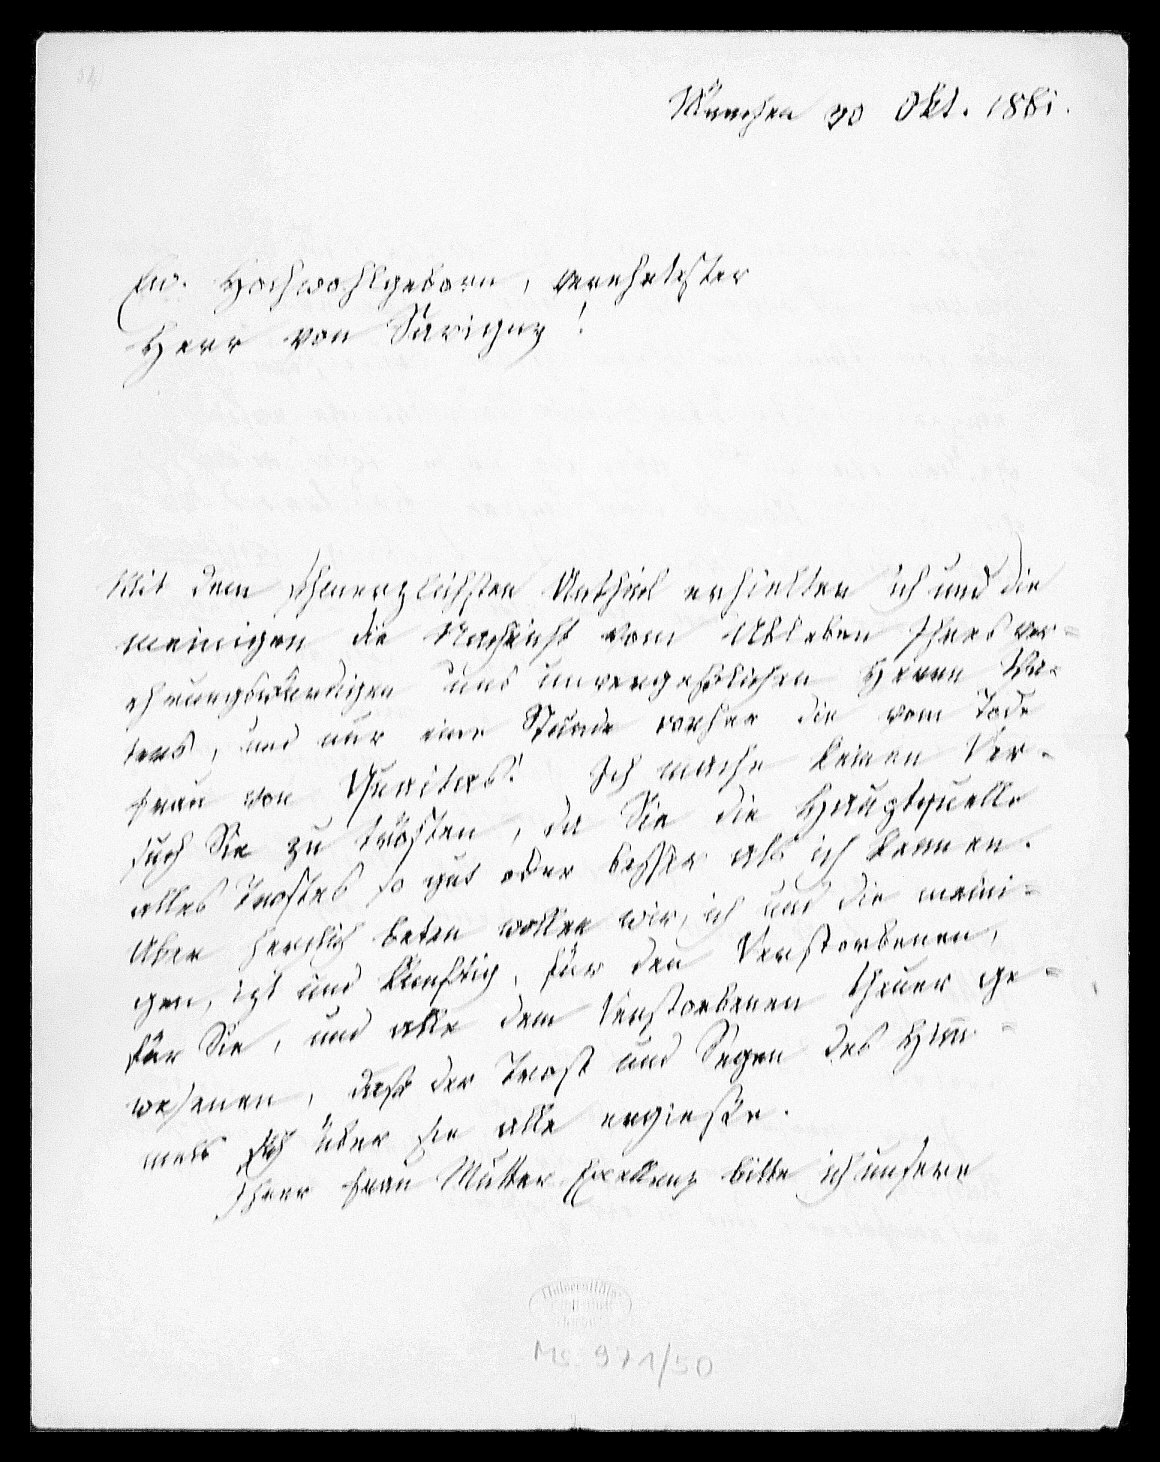 München 30 Okt. 1861.
Ew. Hochwohlgeborn, verehrtester
Herr von Savigny!
Mit dem schmerzlichsten Antheil erhielten ich und die
meinigen die Nachricht vom Ableben Ihres ver-
ehrungswürdigen und unvergeßlichen Herrn Va-
ters, und nur eine Stunde vorher die vom Tode
Frau von Guaitas! Ich mache keinen Ver-
such Sie zu trösten, da Sie die Hauptquelle
alles Trostes so gut oder besser als ich kennen.
Aber herzlich beten wollen wir, ich und die meini-
gen, izt und künftig, für den Verstorbenen,
für Sie, und alle dem Verstorbenen theuer ge-
wesenen, daß der Trost und Segen des Him-
mels sich über sie alle ergieße.
Ihrer Frau Mutter Excellenz bitte ich unsere
Ms. 971/50